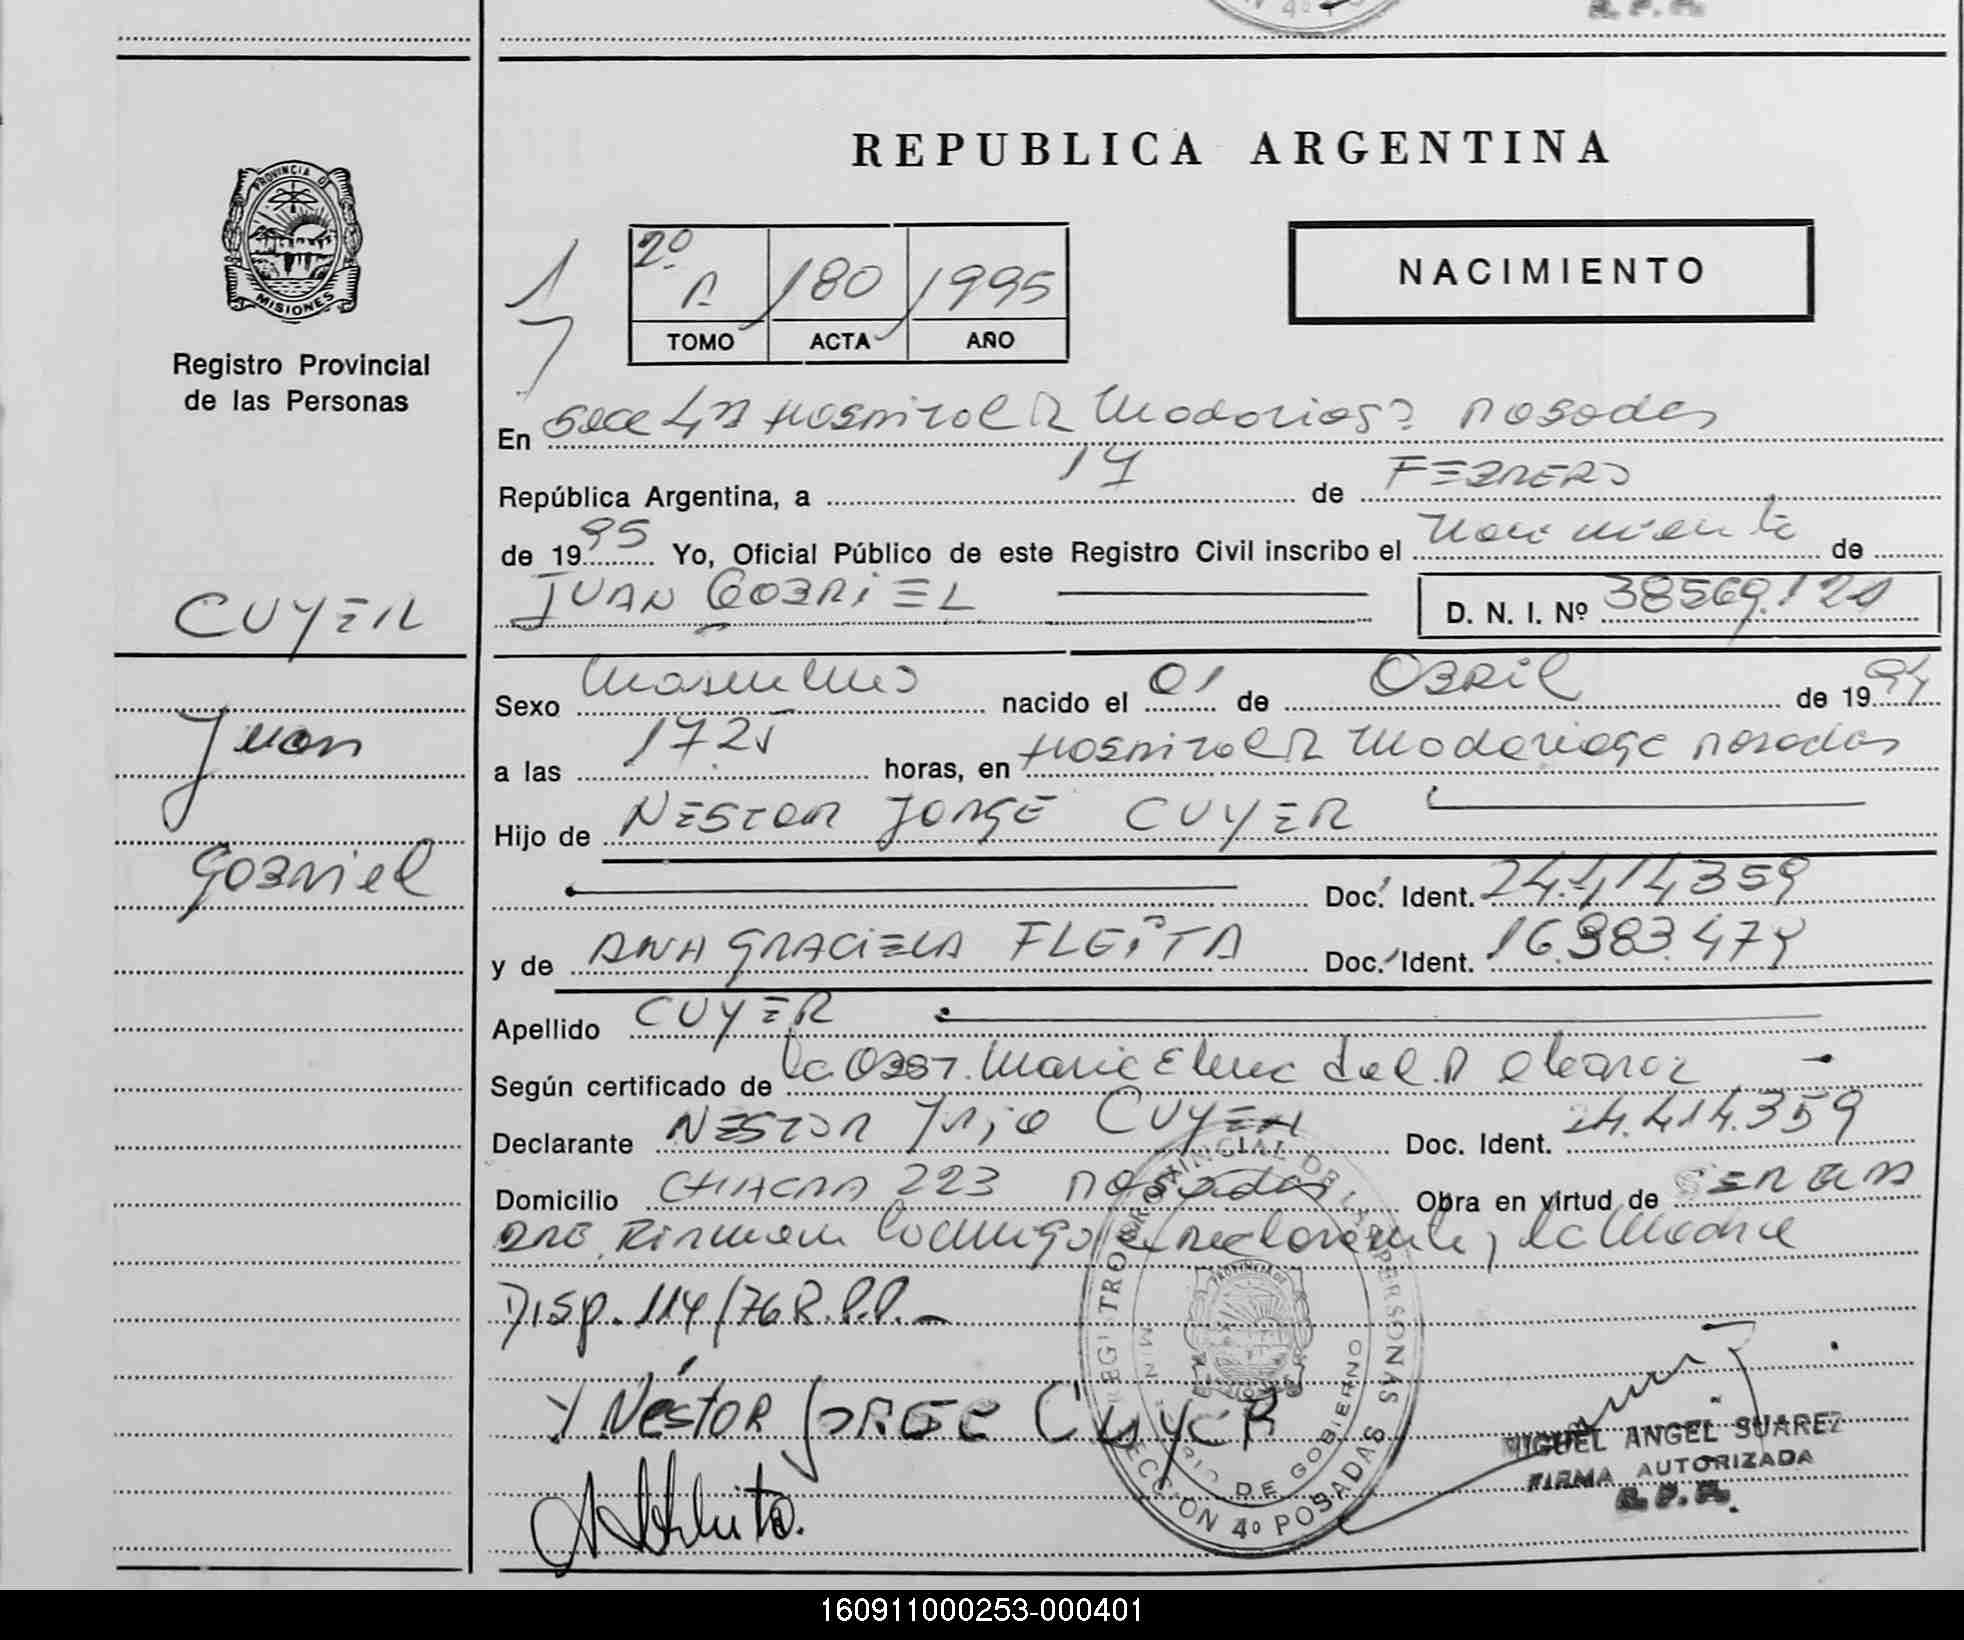 REPUBLICA ARGENTINA
PROVINCIA DE
MISIONES
Registro Provincial
de las Personas
2º A 180 1995
TOMO ACTA AÑO
NACIMIENTO
En Secc 4ta Hospital R Madariaga Posadas
República Argentina, a 14 de FEBRERO
de 1995 Yo, Oficial Público de este Registro Civil inscribo el Nacimiento de
JUAN GABRIEL D. N. I. Nº 38569.121
CUYER
Juan
Gabriel
Sexo Masculino nacido el 01 de Abril de 1994
a las 17 25 horas, en Hospital R Madariaga Posadas
Hijo de NESTOR JORGE CUYER
Doc. Ident. 24.414359
y de ANA GRACIELA FLEITA Doc. Ident. 16.383.479
Apellido CUYER
Según certificado de la Obst. Maria Elena del P
Declarante NESTOR CUYER Doc. Ident. 24.414.359
Domicilio CHACRA 223 Posadas Obra en virtud de SER
PADRE, Firman conmigo el declarante, la Madre
Disp. 114/76 R.P.P.
Y Néstor JORGE CUYER
REGISTRO PROVINCIAL DE LAS PERSONAS
SECCION 4º POSADAS
DE GOBIERNO
MIGUEL ANGEL SUAREZ
FIRMA AUTORIZADA
R. P. P.
160911000253-000401